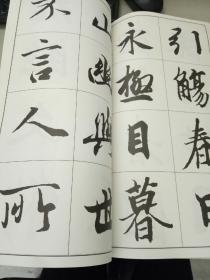 引觴春日
永極目暮
山幽與世
不言人所